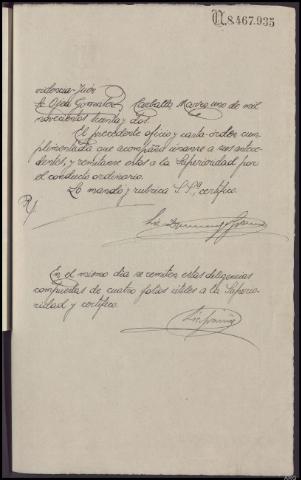 N.8.467.935
videncia-Juez
Sr Ojea Gonzalez. Carballo Marzo uno de mil
novecientos treinta y dos.
El precedente oficio y carta orden cum
plimentada que acompaña únanse a sus antece
dentes, y remitanse estos a la Superioridad por
el conducto ordinario.
Lo mando y rubrica S.Sª, certifico.
En el mismo dia se remiten estas diligencias
compuestas de cuatro folios útiles a la Superio
ridad y certifico.